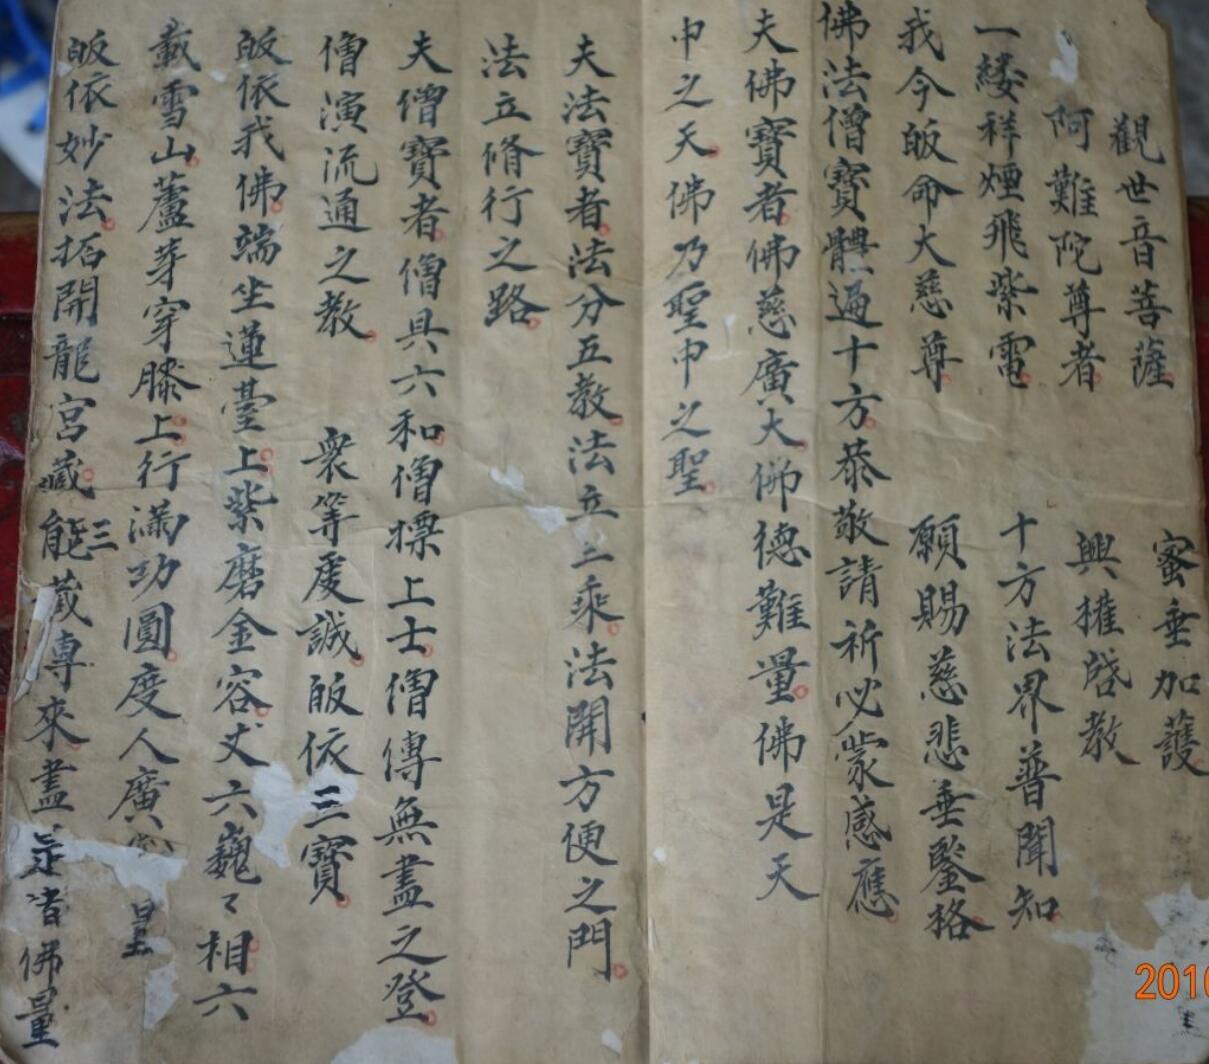 觀世音菩薩 蜜垂加護
阿難陀尊者 興權啓教
一縷祥煙飛紫電 十方法界普聞知
我今皈命大慈尊 願賜慈悲垂鑒格
佛法僧寶體遍十方恭敬請祈必蒙感應
夫佛寶者佛慈廣大佛德難量佛是天
中之天佛乃聖中之聖
夫法寶者法分五教法立二乘法開方便之門
法立脩行之路
夫僧寶者僧具六和僧標上士僧傳無盡之登
僧演流通之教 衆等虔誠皈依三寶
皈依我佛端坐蓮臺上紫磨金容丈六巍〻相六
載雪山蘆芽穿膝上行滿功圓度人廣
皈依妙法拓開龍宮藏三能藏專來盡是者佛量
2010